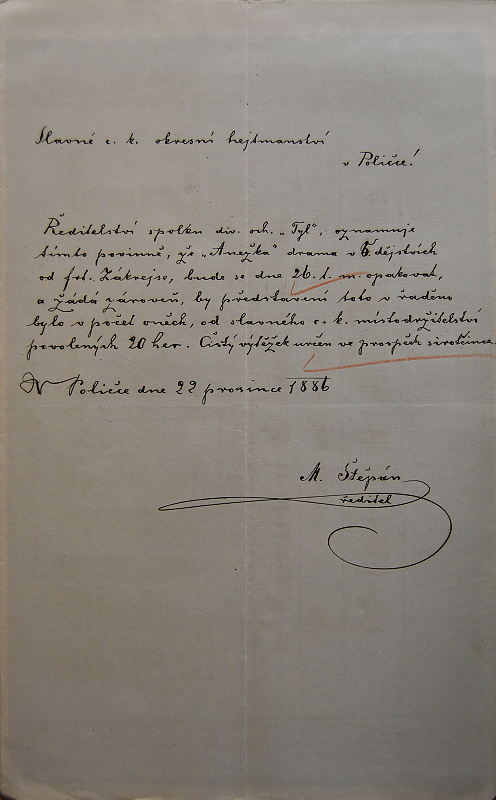 Slavné c. k. okresní hejtmanství
v Poličce!
Ředitelství spolku div. och. „Tyl", oznamuje
tímto povinně, že „Anežka" drama v 5 dějstvích
od frt. Zákrejse, bude se dne 26. t. m. opakovat,
a žádá zároveň, by představení toto v řaděno
bylo v počet oněch, od slavného c. k. místodržitelství
povolených 20 her. Čistý výtěžek určen ve prospěch sirotčince.
V Poličce dne 22 prosince 1886
M. Štěpán
ředitel